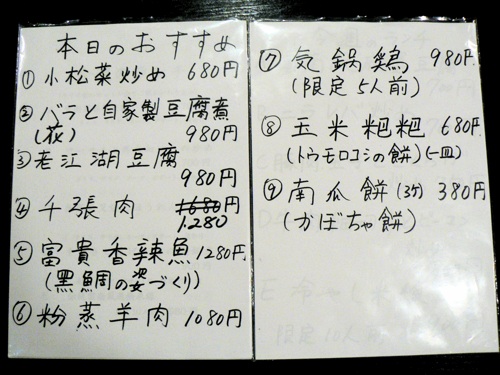 本日のおすすめ
① 小松菜炒め 680円
② バラと自家製豆腐煮
(花) 980円
③ 老江湖豆腐
980円
④ 千張肉 1680円
1.280
⑤ 富貴香辣魚 1280円
(黒鯛の姿づくり)
⑥ 粉蒸羊肉 1080円
⑦ 気鍋鶏 980円
(限定5人前)
⑧ 玉米粑粑 680円
(トウモロコシの餅)(一皿)
⑨ 南瓜餅(3ケ) 380円
(かぼちゃ餅)